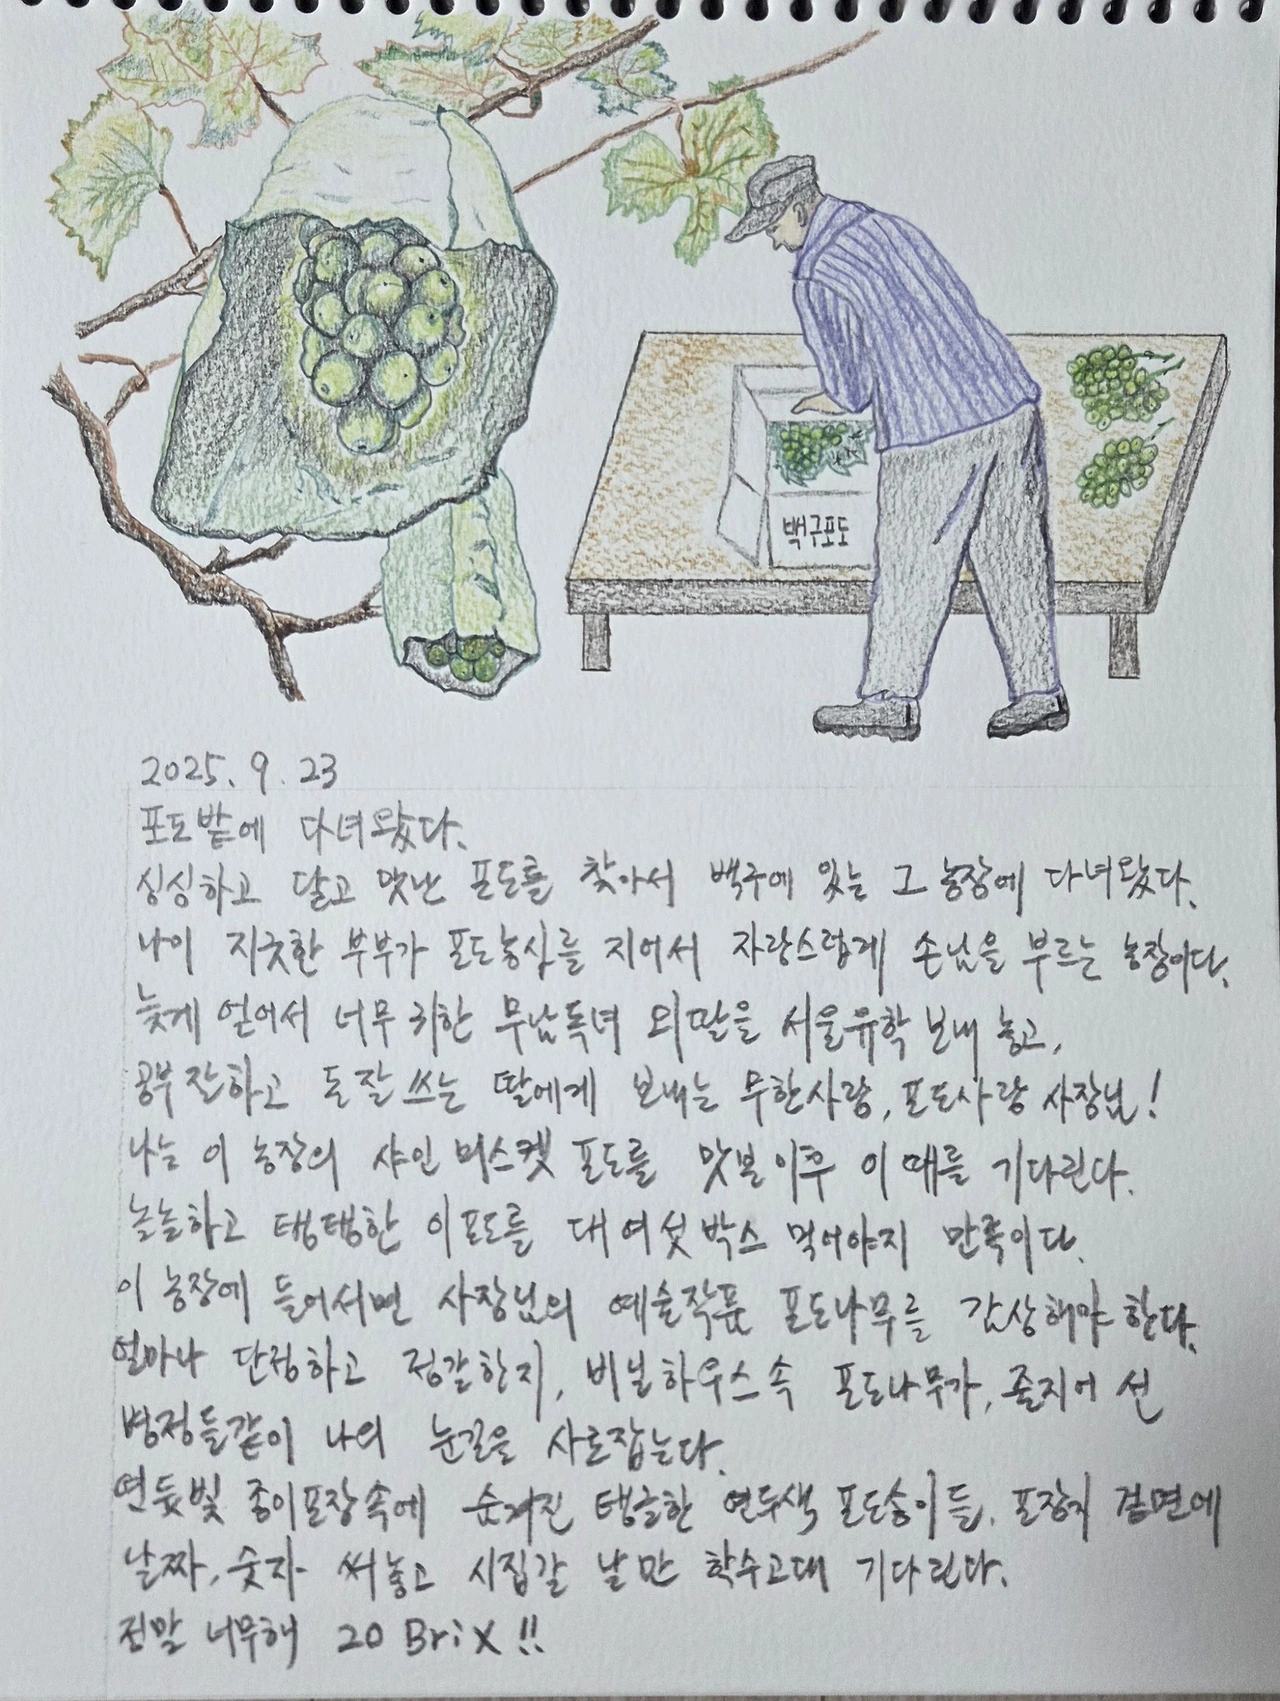 백구포도
2025. 9. 23
포도밭에 다녀왔다.
싱싱하고 달고 맛난 포도를 찾아서 백구에 있는 그 농장에 다녀왔다.
나이 지긋한 부부가 포도농사를 지어서 자랑스럽게 손님을 부르는 농장이다.
늦게 얻어서 너무 귀한 무남독녀 외딸을 서울유학 보내 놓고,
공부 잘하고 돈 잘 쓰는 딸에게 보내는 무한사랑, 포도사랑 사장님!
나는 이 농장의 샤인 머스켓 포도를 맛본 이후 이 때를 기다린다.
놀놀하고 탱탱한 이 포도를 대여섯 박스 먹어야지 만족이다.
이 농장에 들어서면 사장님의 예술작품 포도나무를 감상해야 한다.
얼마나 단정하고 정갈한지, 비닐하우스 속 포도나무가, 줄지어 선
병정들같이 나의 눈길을 사로잡는다.
연듓빛 종이포장속에 숨겨진 탱글한 연두색 포도송이들. 포장지 겉면에
날짜, 숫자 써놓고 시집갈 날만 학수고대 기다린다.
정말 너무해 20 Brix !!